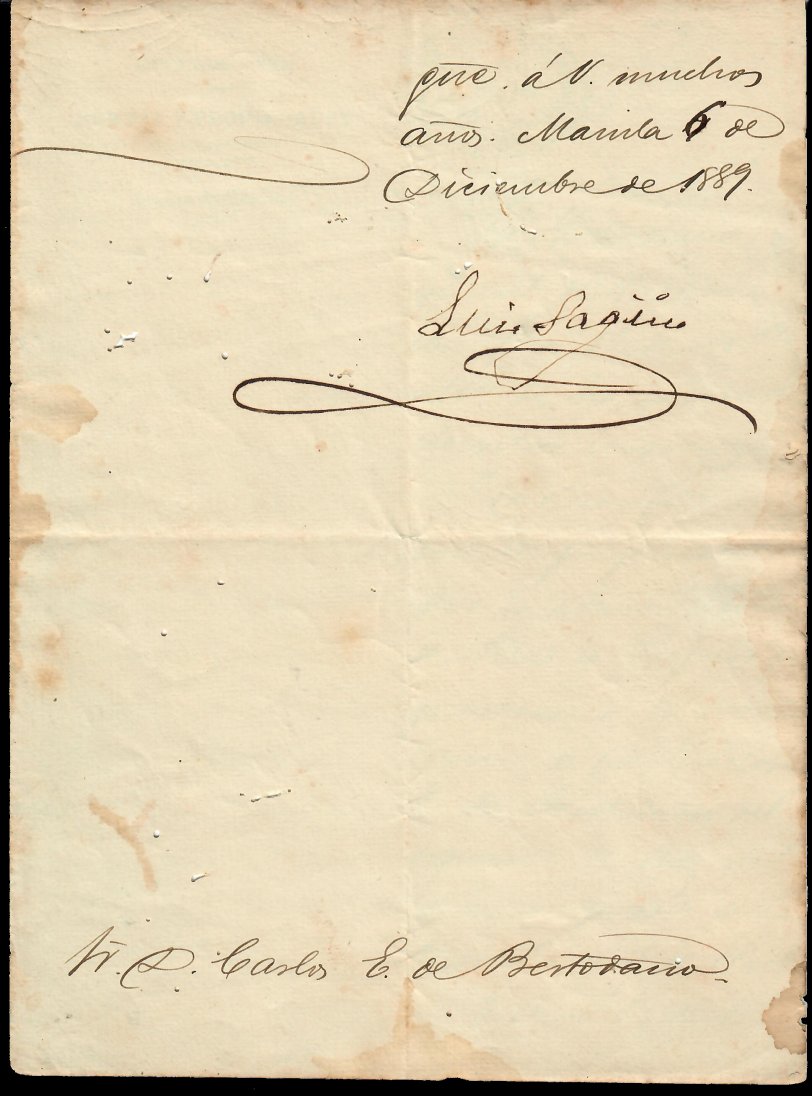 gue. á V. muchos
años. Manila 6 de
Diciembre de 1889.
Luis
Sr. D. Carlos E. de Bertodano.